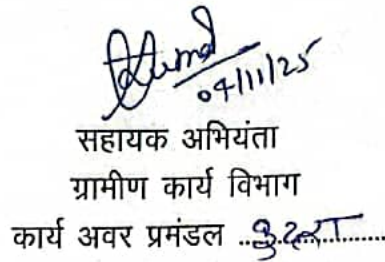 04/11/25
सहायक अभियंता
ग्रामीण कार्य विभाग
कार्य अवर प्रमंडल ..कुदरा..